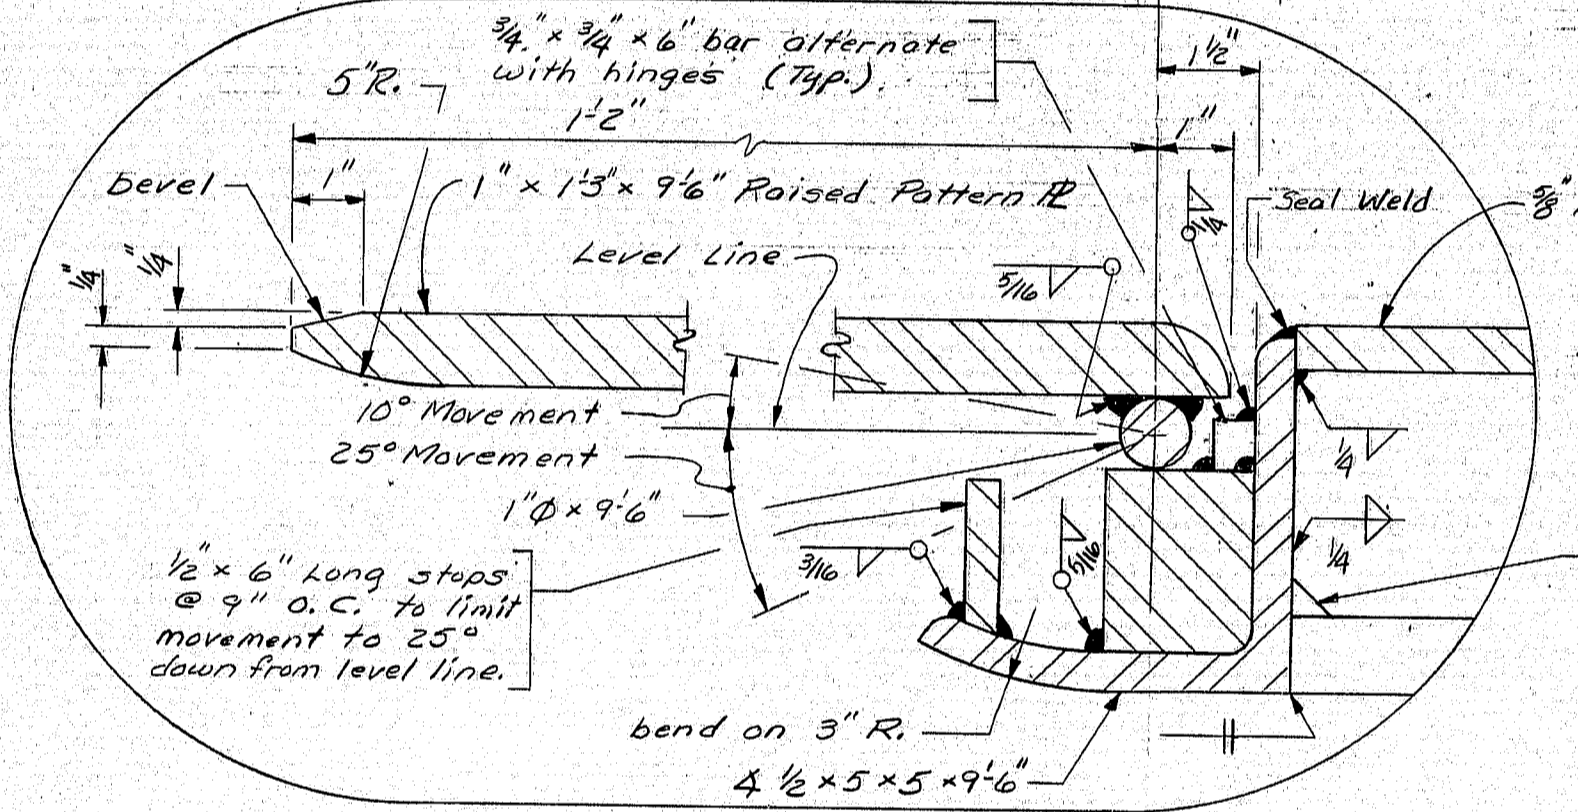 3/4" x 3/4" x 6" bar alternate
with hinges (Typ.)
1 1/2"
5"R.
1'-2"
1"
bevel
1"
1" x 1'-3" x 9'-6" Raised Pattern PL
1/4
Seal Weld
5/8"
1/4"
1/4"
Level Line
5/16
10° Movement
25° Movement
1/4
1"Ø x 9'-6"
3/16
5/16
1/4
1/2" x 6" Long stops
@ 9" O.C. to limit
movement to 25°
down from level line.
bend on 3" R.
∠ 1/2 x 5 x 5 x 9'-6"